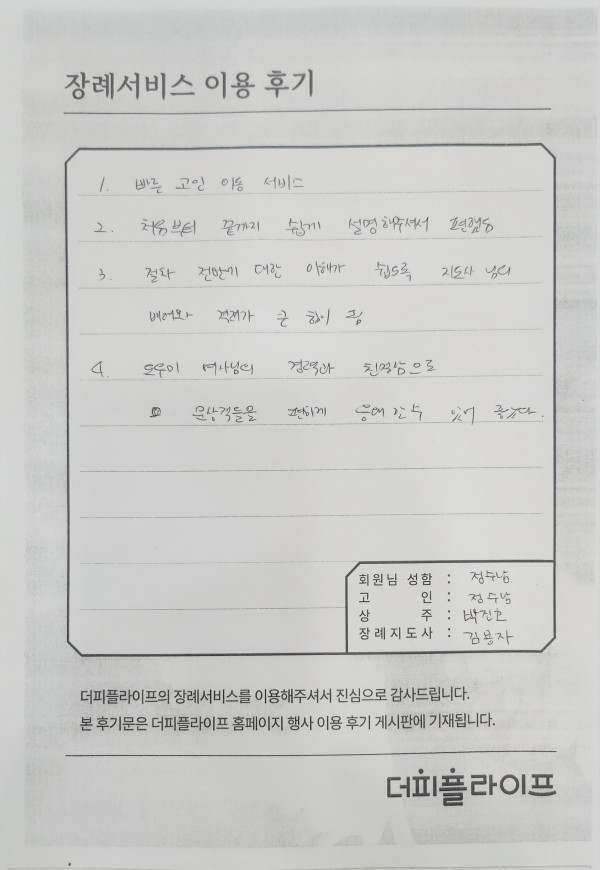 장례서비스 이용 후기
1. 빠른 고인 이동 서비스
2. 처음부터 끝까지 쉽게 설명해주셔서 편했음
3. 절차 전반기 대한 이해가 쉽도록 지도사 님의
배려와 격려가 큰 힘이 됨
4. 도우미 여사님의 경력과 친절함으로
문상객들을 편하게 응대 할 수 있어 좋았다.
회원님 성함 : 정수남
고 인 : 정수남
상 주 : 박진호
장례지도사 : 김용자
더피플라이프의 장례서비스를 이용해주셔서 진심으로 감사드립니다.
본 후기문은 더피플라이프 홈페이지 행사 이용 후기 게시판에 기재됩니다.
더피플라이프